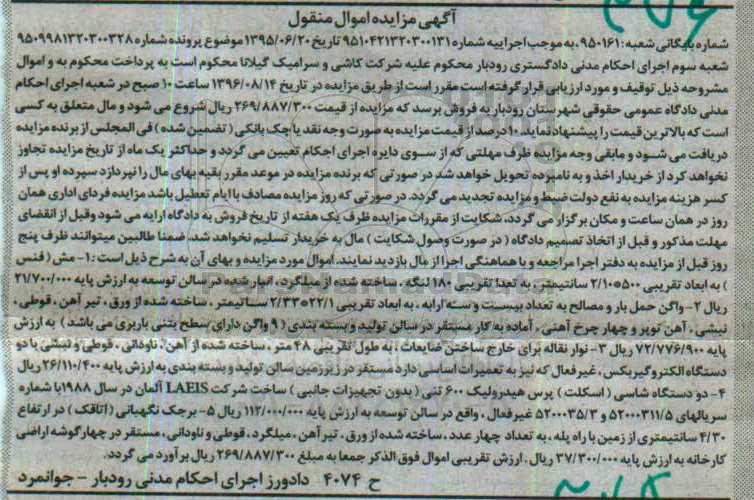 آگهی مزایده اموال منقول
شماره بایگانی شعبه: ۹۵۰۱۶۱، به موجب اجراییه شماره ۹۵۱۰۴۲۱۳۲۰۳۰۰۱۳۱ تاریخ ۱۳۹۵/۰۶/۲۰ موضوع پرونده شماره ۹۵۰۹۹۸۱۳۲۰۳۰۰۳۲۸
شعبه سوم اجرای احکام مدنی دادگستری رودبار محکوم علیه شرکت کاشی و سرامیک گیلانا محکوم است به پرداخت محکوم به و اموال
مشروحه ذیل توقیف و مورد ارزیابی قرار گرفته است مقرر است از طریق مزایده در تاریخ ۱۳۹۶/۰۸/۱۴ ساعت ۱۰ صبح در شعبه اجرای احکام
مدنی دادگاه عمومی حقوقی شهرستان رودبار به فروش برسد که مزایده از قیمت ۲۶۹/۸۸۷/۳۰۰ ریال شروع می شود و مال متعلق به کسی
است که بالاترین قیمت را پیشنهاد نماید. ۱۰ درصد از قیمت مزایده به صورت وجه نقد یا چک بانکی (تضمین شده) فی المجلس از برنده مزایده
دریافت می شود و مابقی وجه مزایده ظرف مهلتی که از سوی دایره اجرای احکام تعیین می گردد و حداکثر یک ماه از تاریخ مزایده تجاوز
نخواهد کرد از خریدار اخذ و به نامبرده تحویل خواهد شد در صورتی که برنده مزایده در موعد مقرر بقیه بهای مال را نپردازد سپرده او پس از
کسر هزینه مزایده به نفع دولت ضبط و مزایده تجدید می گردد. در صورتی که روز مزایده مصادف با ایام تعطیل باشد مزایده فردای اداری همان
روز در همان ساعت و مکان برگزار می گردد، شکایت از مقررات مزایده ظرف یک هفته از تاریخ فروش به دادگاه ارایه می شود وقبل از انقضای
مهلت مذکور و قبل از اتخاذ تصمیم دادگاه (در صورت وصول شکایت) مال به خریدار تسلیم نخواهد شد. ضمنا طالبین میتوانند ظرف پنج
روز قبل از مزایده به دفتر اجرا مراجعه و با هماهنگی اجرا از مال بازدید نمایند. اموال مورد مزایده و بهای آن به شرح ذیل است: ۱- مش (فنس
) به ابعاد تقریبی ۵۰۰*۲/۱۰ سانتیمتر، به تعدا تقریبی ۱۸۰ لنگه، ساخته شده از میلگرد، انبار شده در سالن توسعه به ارزش پایه ۲۱/۷۰۰/۰۰۰
ریال ۲- واگن حمل بار و مصالح به تعداد بیست و سه ارابه، به ابعاد تقریبی ۲۲/۱*۲/۳۳ سانتیمتر، ساخته شده از ورق، تیر آهن، قوطی،
نبشی، آهن توپر و چهار چرخ آهنی، آماده به کار مستقر در سالن تولید و بسته بندی (۹ واگن دارای سطح بتنی باربری می باشد) به ارزش
پایه ۷۲/۷۷۶/۹۰۰ ریال ۳- نوار نقاله برای خارج ساختن ضایعات، به طول تقریبی ۴۸ متر، ساخته شده از آهن، ناودانی، قوطی و نبشی با دو
دستگاه الکتروگیربکس، غیرفعال که نیز به تعمیرات اساسی دارد مستقر در زیرزمین سالن تولید و بسته بندی به ارزش پایه ۲۶/۱۱۰/۴۰۰ ریال
۴- دو دستگاه شاسی (اسکلت) پرس هیدرولیک ۶۰۰ تنی (بدون تجهیزات جانبی) ساخت شرکت LAEIS آلمان در سال ۱۹۸۸ با شماره
سریالهای ۵۲۰۰۰۳۱۱/۵ و ۵۲۰۰۰۳۵/۳ غیرفعال، واقع در سالن توسعه به ارزش پایه ۱۱۲/۰۰۰/۰۰۰ ریال ۵- برجک نگهبانی (اتاقک) در ارتفاع
۴/۳۰ سانتیمتری از زمین با راه پله، به تعداد چهار عدد، ساخته شده از ورق، تیر آهن، میلگرد، قوطی و ناودانی، مستقر در چهار گوشه اراضی
کارخانه به ارزش پایه ۳۷/۳۰۰/۰۰۰ ریال. ارزش تقریبی اموال فوق الذکر جمعا به مبلغ ۲۶۹/۸۸۷/۳۰۰ ریال برآورد می گردد.
ح ۴۰۷۴ دادورز اجرای احکام مدنی رودبار - جوانمرد